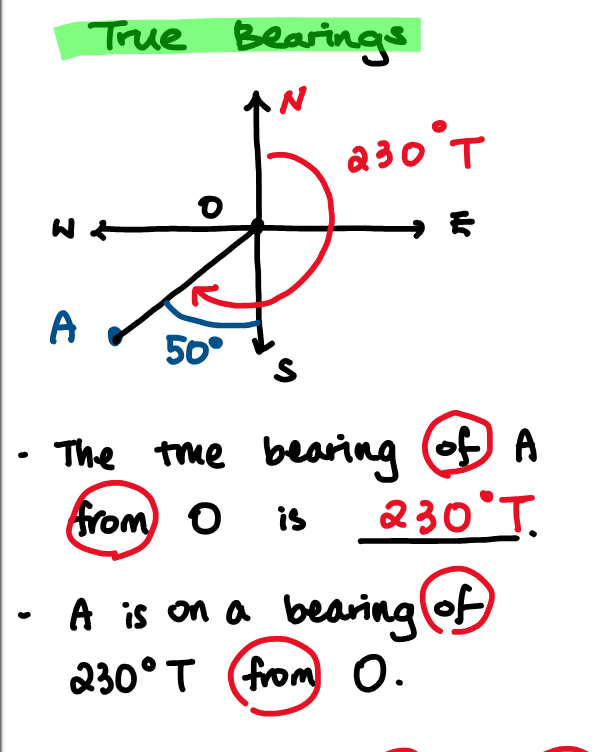 True Bearings
N
230°T
O
W
E
A
50°
S
- The true bearing of A
from O is 230°T.
- A is on a bearing of
230°T from O.